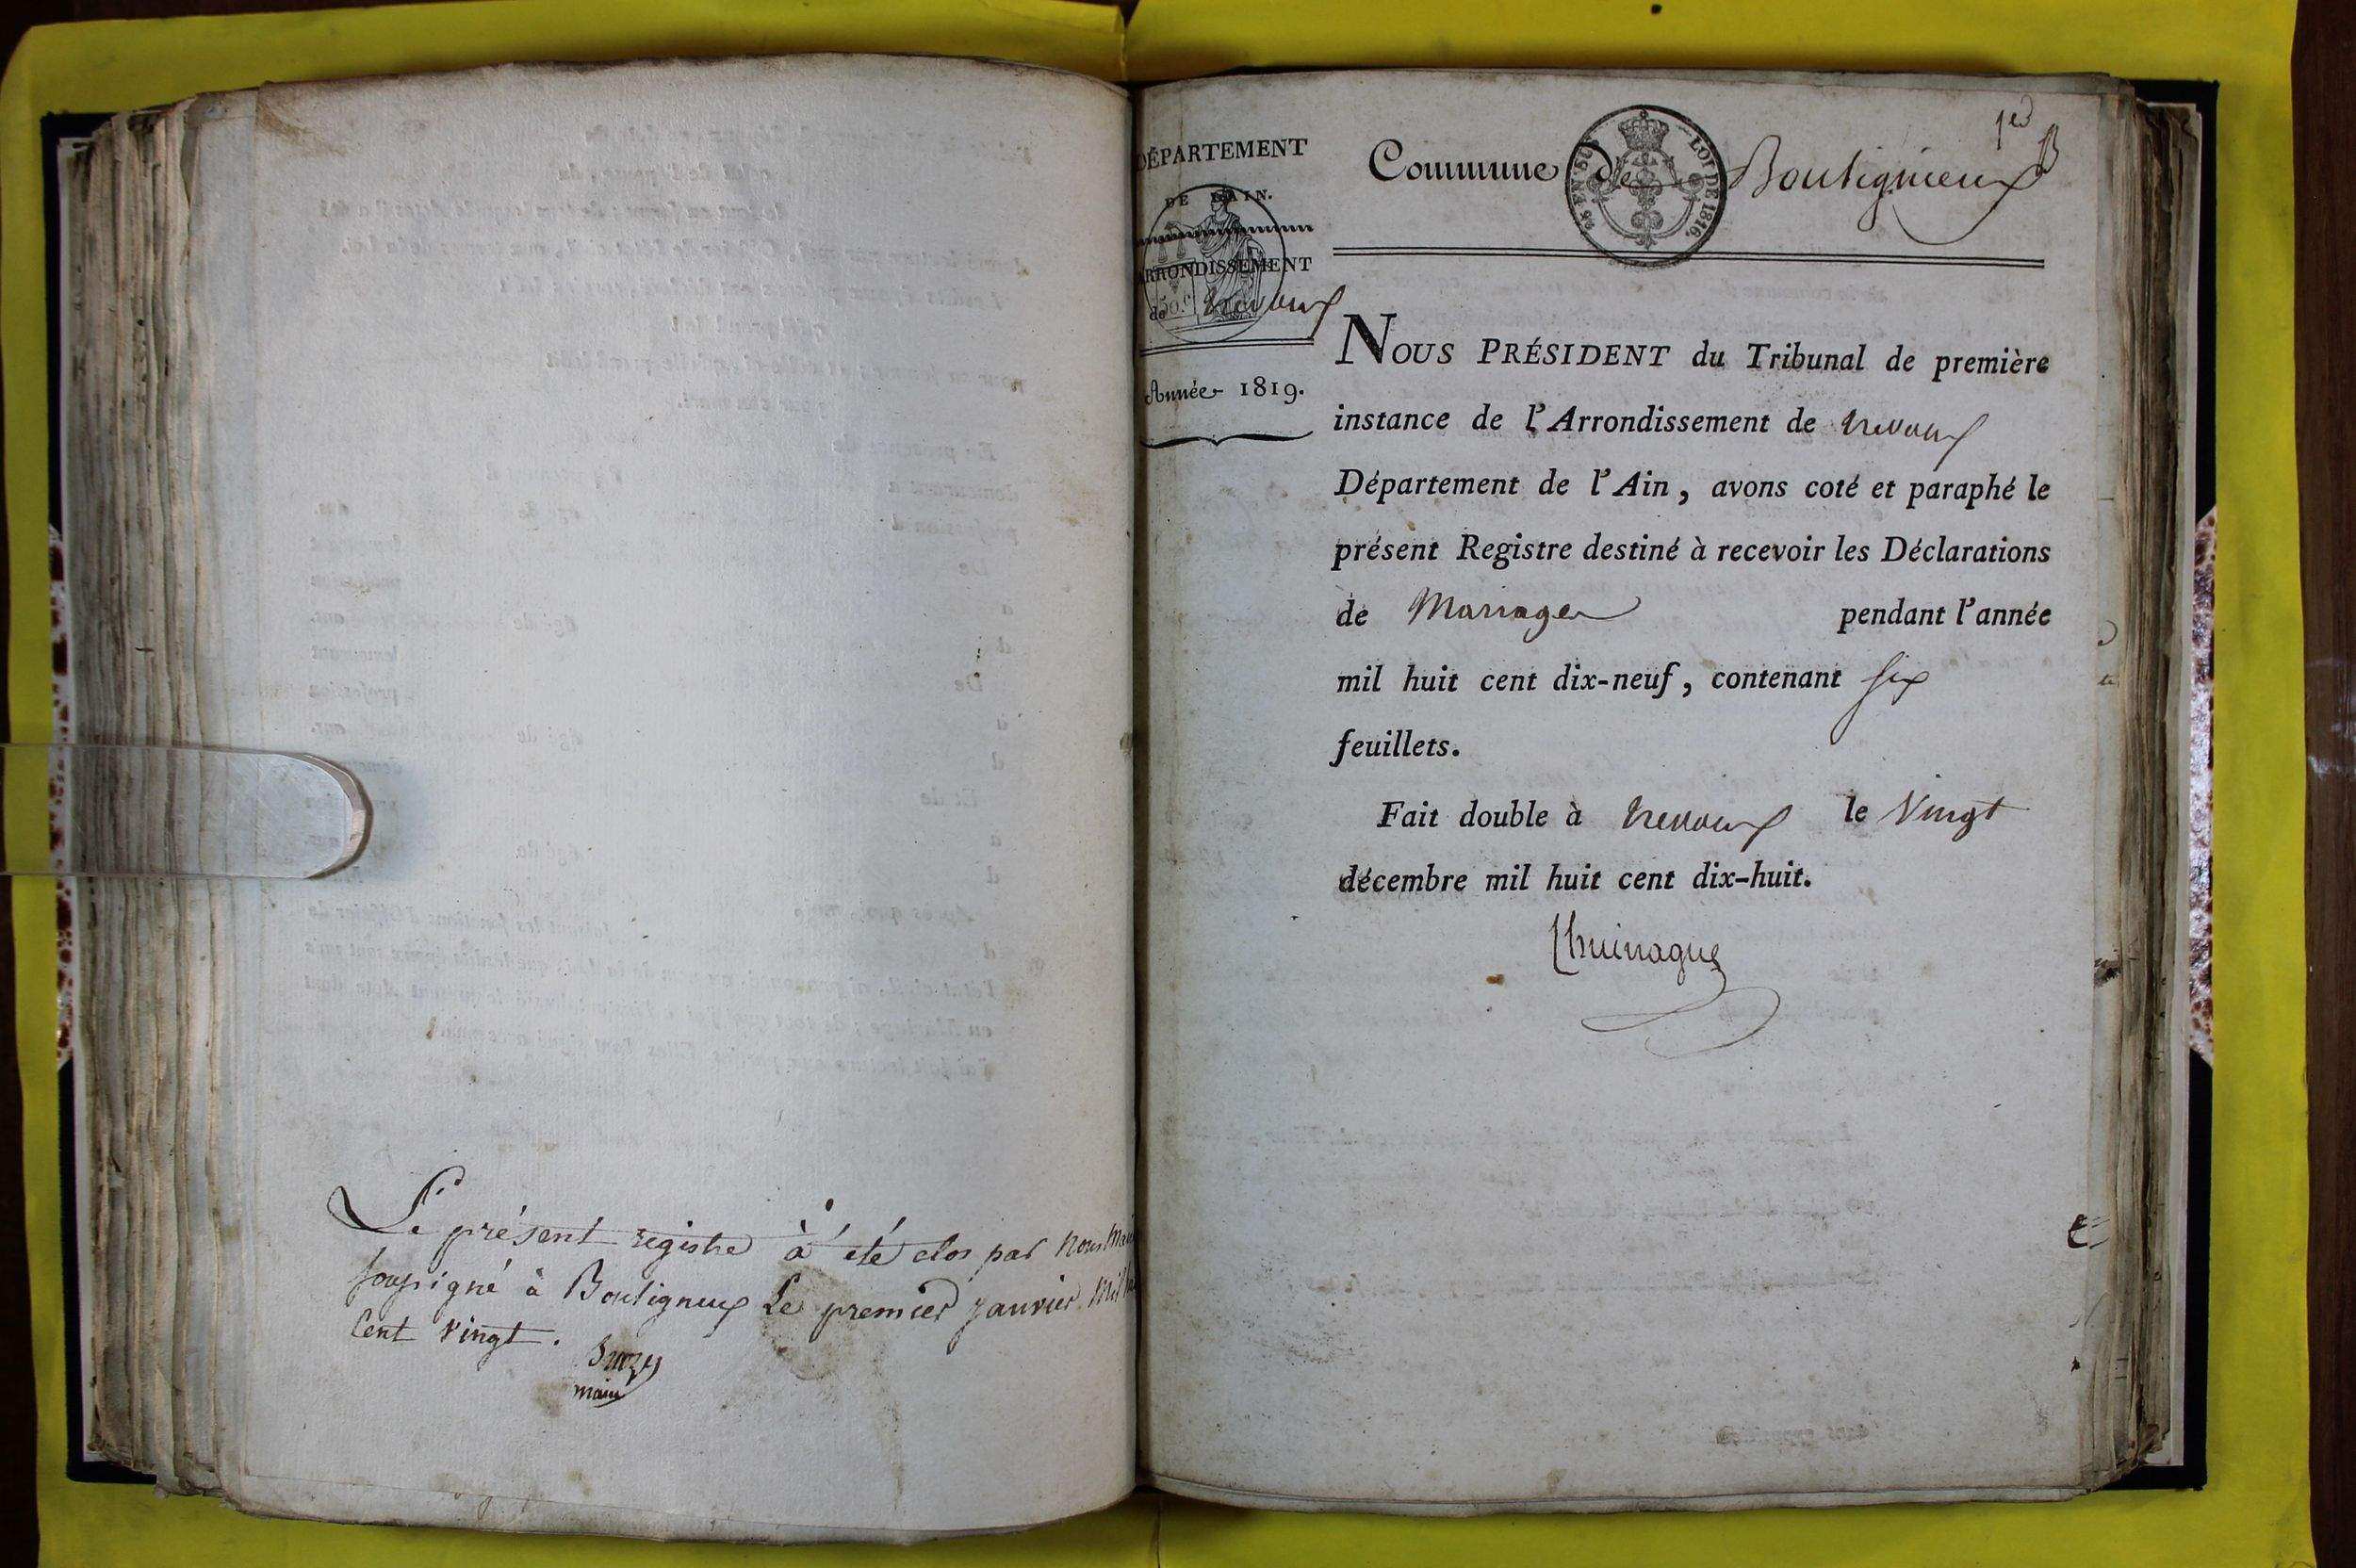 Le présent registre à été clos par nous Mai
soussigné à Bouligneux Le premier janvier mil h
Cent vingt.
maire
DÉPARTEMENT
DE L'AIN.
ARRONDISSEMENT
de Trevoux
Année 1819.
50. c
Commune de Bouligneux
1er
25 EN SUS
LOI DE 1816.
NOUS PRÉSIDENT du Tribunal de première
instance de l'Arrondissement de Trevoux
Département de l'Ain, avons coté et paraphé le
présent Registre destiné à recevoir les Déclarations
de Mariages pendant l'année
mil huit cent dix-neuf, contenant six
feuillets.
Fait double à Trevoux le Vingt
décembre mil huit cent dix-huit.